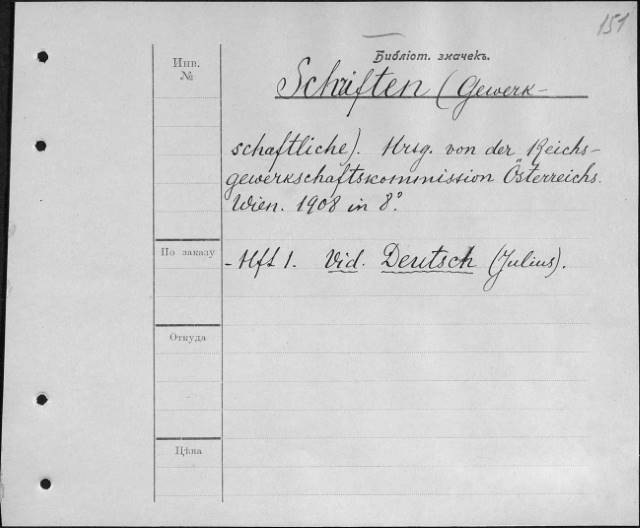 151
Инв.
№
Библіот. значекъ.
Schriften (Gewerk-
schaftliche). Hrsg. von der Reichs-
gewerkschaftskommission Österreichs.
Wien. 1908 in 8°.
По заказу
- Hft 1. Vid. Deutsch (Julius).
Откуда
Цѣна